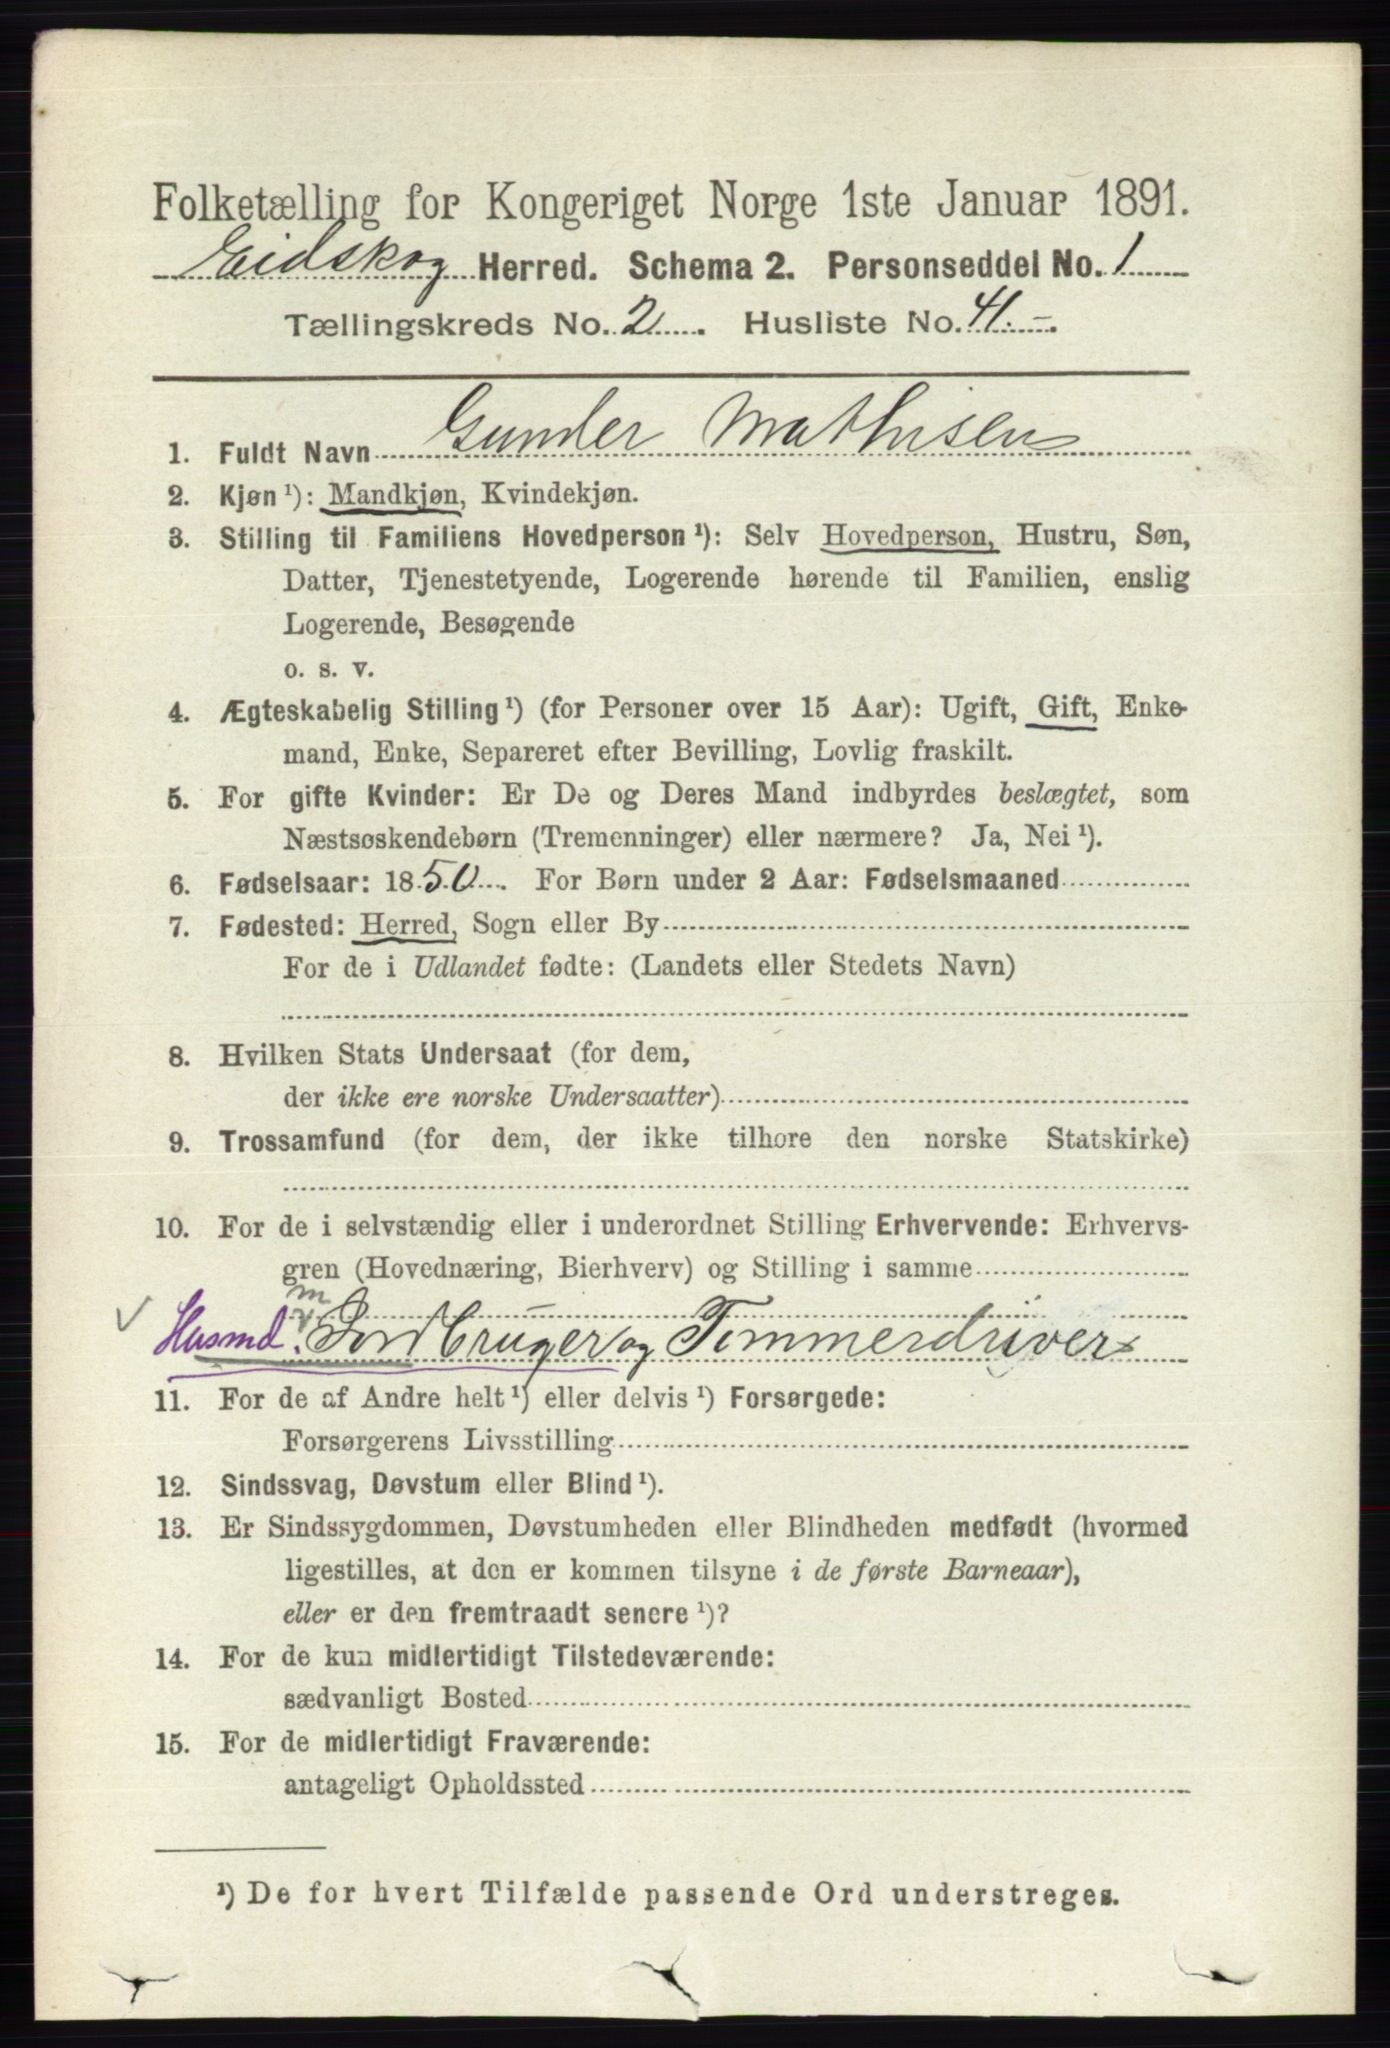 Folketælling for Kongeriget Norge 1ste Januar 1891.
Eidskog Herred. Schema 2. Personseddel No. 1
Tællingskreds No. 2. Husliste No. 41.-
1. Fuldt Navn Gunder Mathisen
2. Kjøn ¹): Mandkjøn, Kvindekjøn.
3. Stilling til Familiens Hovedperson ¹): Selv Hovedperson, Hustru, Søn,
Datter, Tjenestetyende, Logerende hørende til Familien, enslig
Logerende, Besøgende
o. s. v.
4. Ægteskabelig Stilling ¹) (for Personer over 15 Aar): Ugift, Gift, Enke-
mand, Enke, Separeret efter Bevilling, Lovlig fraskilt.
5. For gifte Kvinder: Er De og Deres Mand indbyrdes beslægtet, som
Næstsøskendebørn (Tremenninger) eller nærmere? Ja, Nei ¹).
6. Fødselsaar: 1850. For Børn under 2 Aar: Fødselsmaaned
7. Fødested: Herred, Sogn eller By
For de i Udlandet fødte: (Landets eller Stedets Navn)
8. Hvilken Stats Undersaat (for dem,
der ikke ere norske Undersaatter)
9. Trossamfund (for dem, der ikke tilhøre den norske Statskirke)
10. For de i selvstændig eller i underordnet Stilling Erhvervende: Erhvervs-
gren (Hovednæring, Bierhverv) og Stilling i samme
m
Husmd. v Jordbruger og Tømmerdriver
11. For de af Andre helt ¹) eller delvis ¹) Forsørgede:
Forsørgerens Livsstilling
12. Sindssvag, Døvstum eller Blind ¹).
13. Er Sindssygdommen, Døvstumheden eller Blindheden medfødt (hvormed
ligestilles, at den er kommen tilsyne i de første Barneaar),
eller er den fremtraadt senere ¹)?
14. For de kun midlertidigt Tilstedeværende:
sædvanligt Bosted
15. For de midlertidigt Fraværende:
antageligt Opholdssted
¹) De for hvert Tilfælde passende Ord understreges.